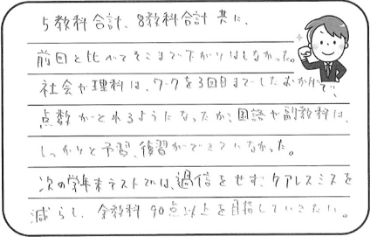 5教科合計、8教科合計共に、
前回と比べてそこまで下がりはしなかった。
社会や理科は、ワークを3回目までしたおかげで、
点数がとれるようになったが、国語や副教科は、
しっかりと予習、復習ができていなかった。
次の学年末テストでは、過信をせず、ケアレスミスを
減らし、全教科90点以上を目指していきたい。